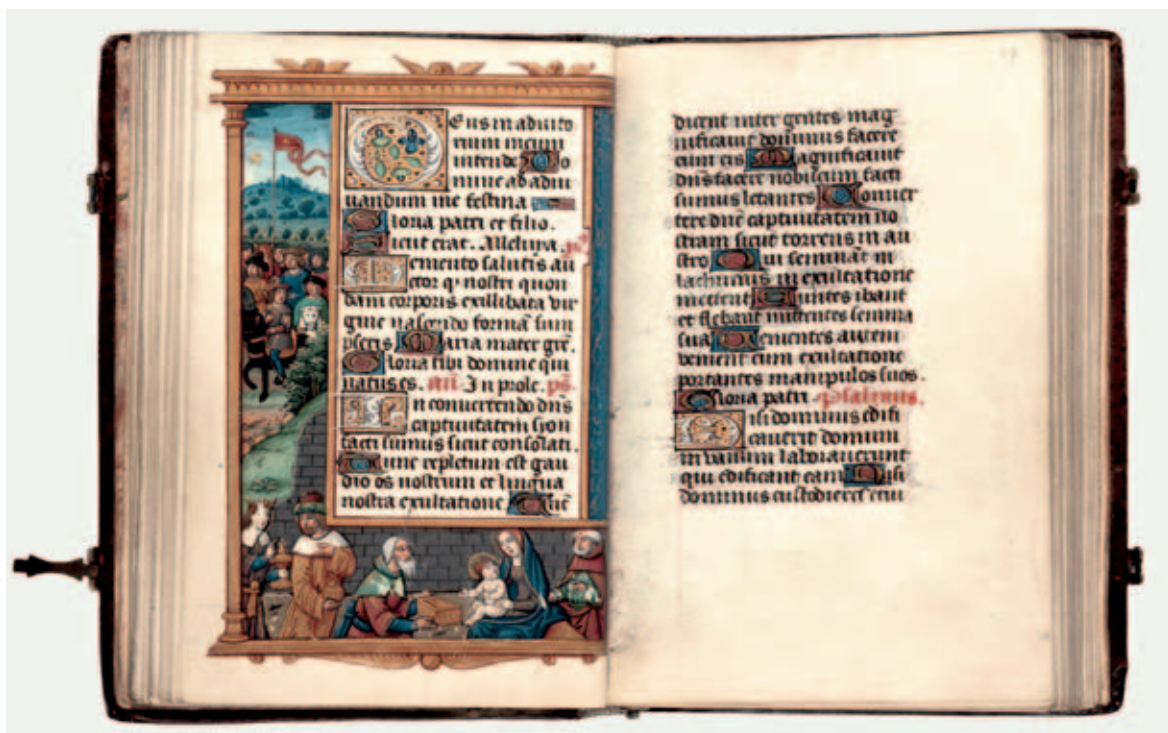 Eus in adiuto
rium meum
intende Do
mine ad adiu
uandum me festina
Gloria patri et filio.
Sicut erat. Alleluya.
Memento salutis au
ctor qͥ nostri quon
dam corporis ex illibata vir
gine nascendo formā sum
pseris Maria mater grē.
Gloria tibi domine qui
natus es. añ In prole. ps̄.
In conuertendo dñs
captiuitatem syon
facti sumus sicut consolati.
Tunc repletum est gau
dio os nostrum et lingua
nostra exultatione Tūc
dicent inter gentes mag
nificauit dominus facere
cum eis Magnificauit
dñs facere nobiscum facti
sumus letantes Conuer
tere dñe captiuitatem no
stram sicut torrens in au
stro Qui semināt in
lachrimis in exultatione
metent Euntes ibant
et flebant mittentes semina
sua Uenientes autem
venient cum exultatione
portantes manipulos suos.
Gloria patri. Psalmus.
Nisi dominus edifi
cauerit domum
in vanum laborauerunt
qui edificant eam Nisi
dominus custodierit ciui